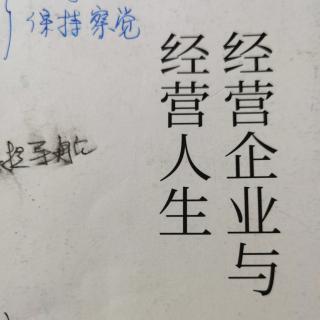 保持察觉
经营企业与
经营人生